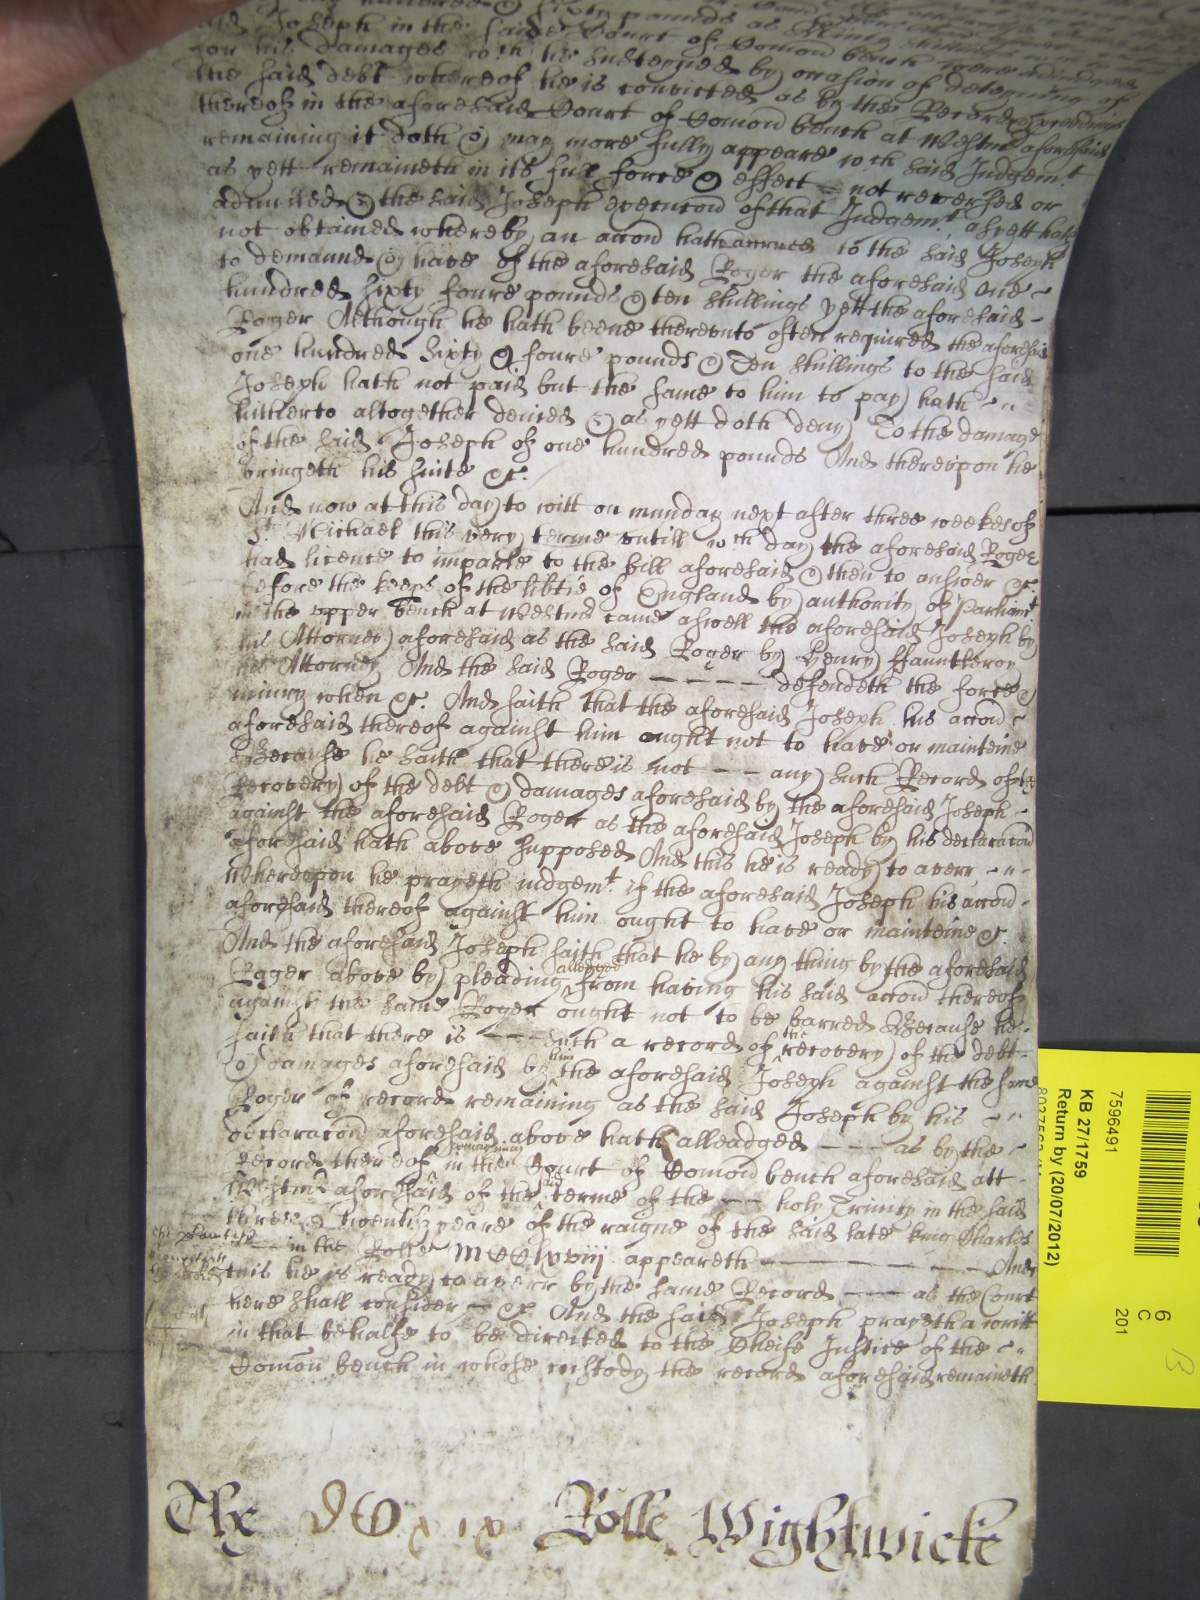 hundred & sixty pounds as
said Joseph in the said Court of Comon bench were adiudged
for his damages wch he susteyned by occasion of deteyning of
the said debt whereof he is convicted as by the Record & proceedings
thereof in the aforesaid Court of Comon bench at Westmr aforesaid
remaining it doth & may more fully appeare wch said Judgemt
as yett remaineth in its full force & effect not reversed or
adnulled & the said Joseph execucon of that Judgemt as yett hath
not obtained whereby an accon hath accrued to the said Joseph
to demaund & have of the aforesaid Roger the aforesaid one
hundred sixty foure pounds & ten shillings yett the aforesaid
Roger Although he hath beene thereunto often required the aforesaid
one hundred sixty & foure pounds & Ten shillings to the said
Joseph hath not paid but the same to him to pay hath
hitherto altogether denied & as yett doth deny To the damage
of the said Joseph of one hundred pounds And thereupon he
bringeth his suite &c.
And now at this day to witt on munday next after three weekes of
St. Michael this very terme untill wch day the aforesaid Roger
had licence to imparle to the bill aforesaid & then to answer &c
before the keeps of the libtie of England by authority of Parliamt
in the upper bench at Westmr came aswell the aforesaid Joseph by
his Attorney aforesaid as the said Roger by Henry Hauntleroy
his Attorney And the said Roger ---- defendeth the force &
iniury when &c. And saith that the aforesaid Joseph his accon
aforesaid thereof against him ought not to have or mainteine
Because he saith that there is not -- any such Record of the
Recovery of the debt & damages aforesaid by the aforesaid Joseph
against the aforesaid Roger as the aforesaid Joseph by his declaracon
aforesaid hath above supposed And this he is ready to averr
Whereupon he prayeth iudgemt. if the aforesaid Joseph his accon
aforesaid thereof against him ought to have or mainteine &c.
And the aforesaid Joseph saith that he by any thing by the aforesaid
Roger above by pleading alledged from having his said accon thereof
against the same Roger ought not to be barred Because he
saith that there is --- such a record of the recovery of the debt
& damages aforesaid by him the aforesaid Joseph against the same
Roger of record remaining as the said Joseph by his
declaracon aforesaid above hath alleadged --- as by the
Record thereof remaining in the Court of Comon bench aforesaid att
Westmr aforesaid of the terme of the -- holy Trinity in the said
three & twentith yeare of the raigne of the said late king Charles
in the Rolle MCClxviij appeareth ---- And
this he is ready to averr by the same Record --- as the Court
here shall consider &c. And the said Joseph prayeth a writt
in that behalfe to be directed to the Cheife Justice of the
Comon bench in whose custody the record aforesaid remaineth
The DCxix Rolle Wightwicke
7596491
KB 27/1759
Return by (20/07/2012)
6
C
201